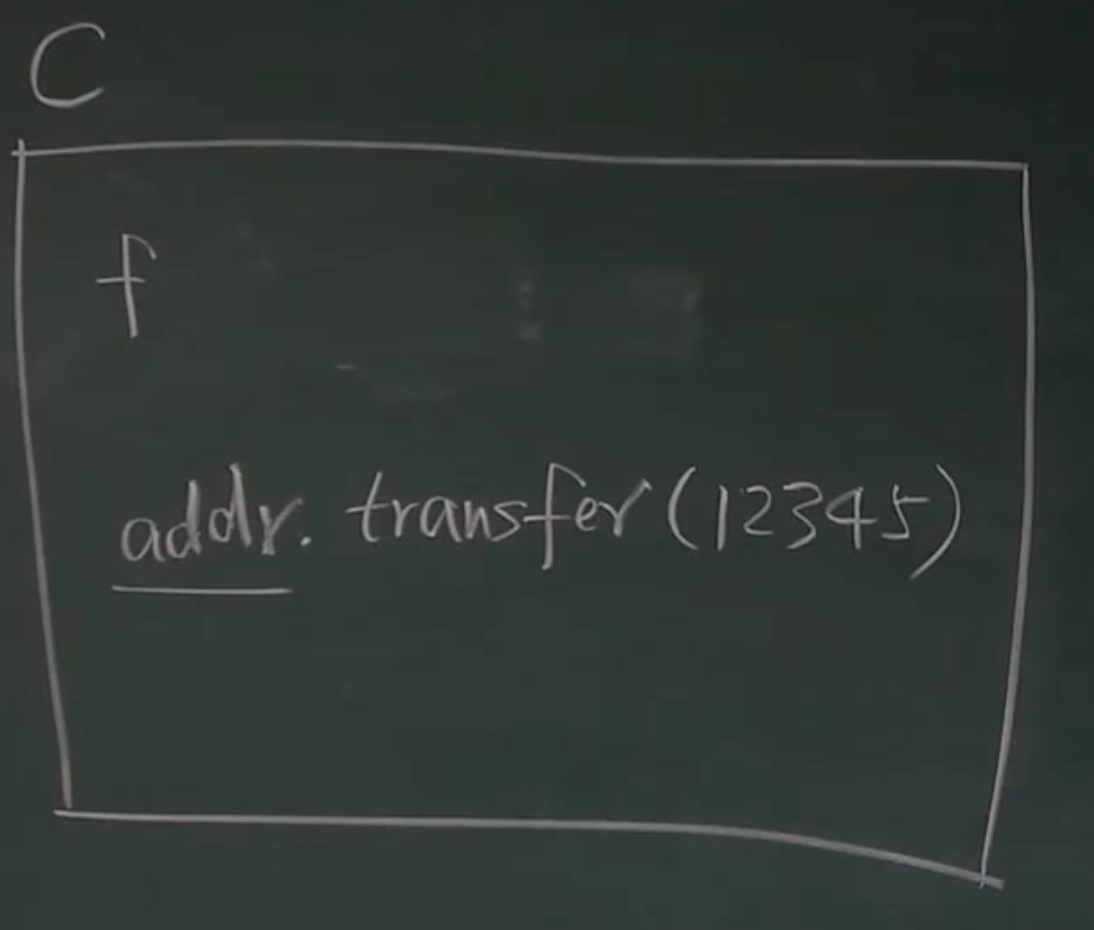 C
f
addr. transfer(12345)